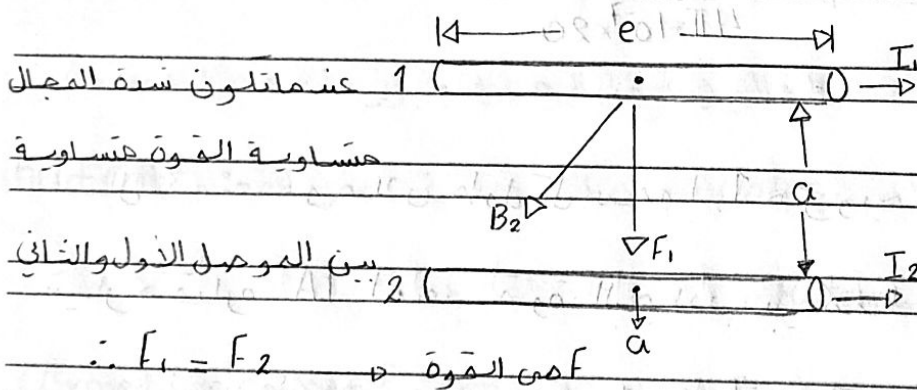 e
I₁
1 عندما تكون شدة المجال
متساوية القوة متساوية
a
B₂
F₁
بين الموصل الأول والثاني
I₂
2
a
∴ F₁ = F₂ → F هي القوة